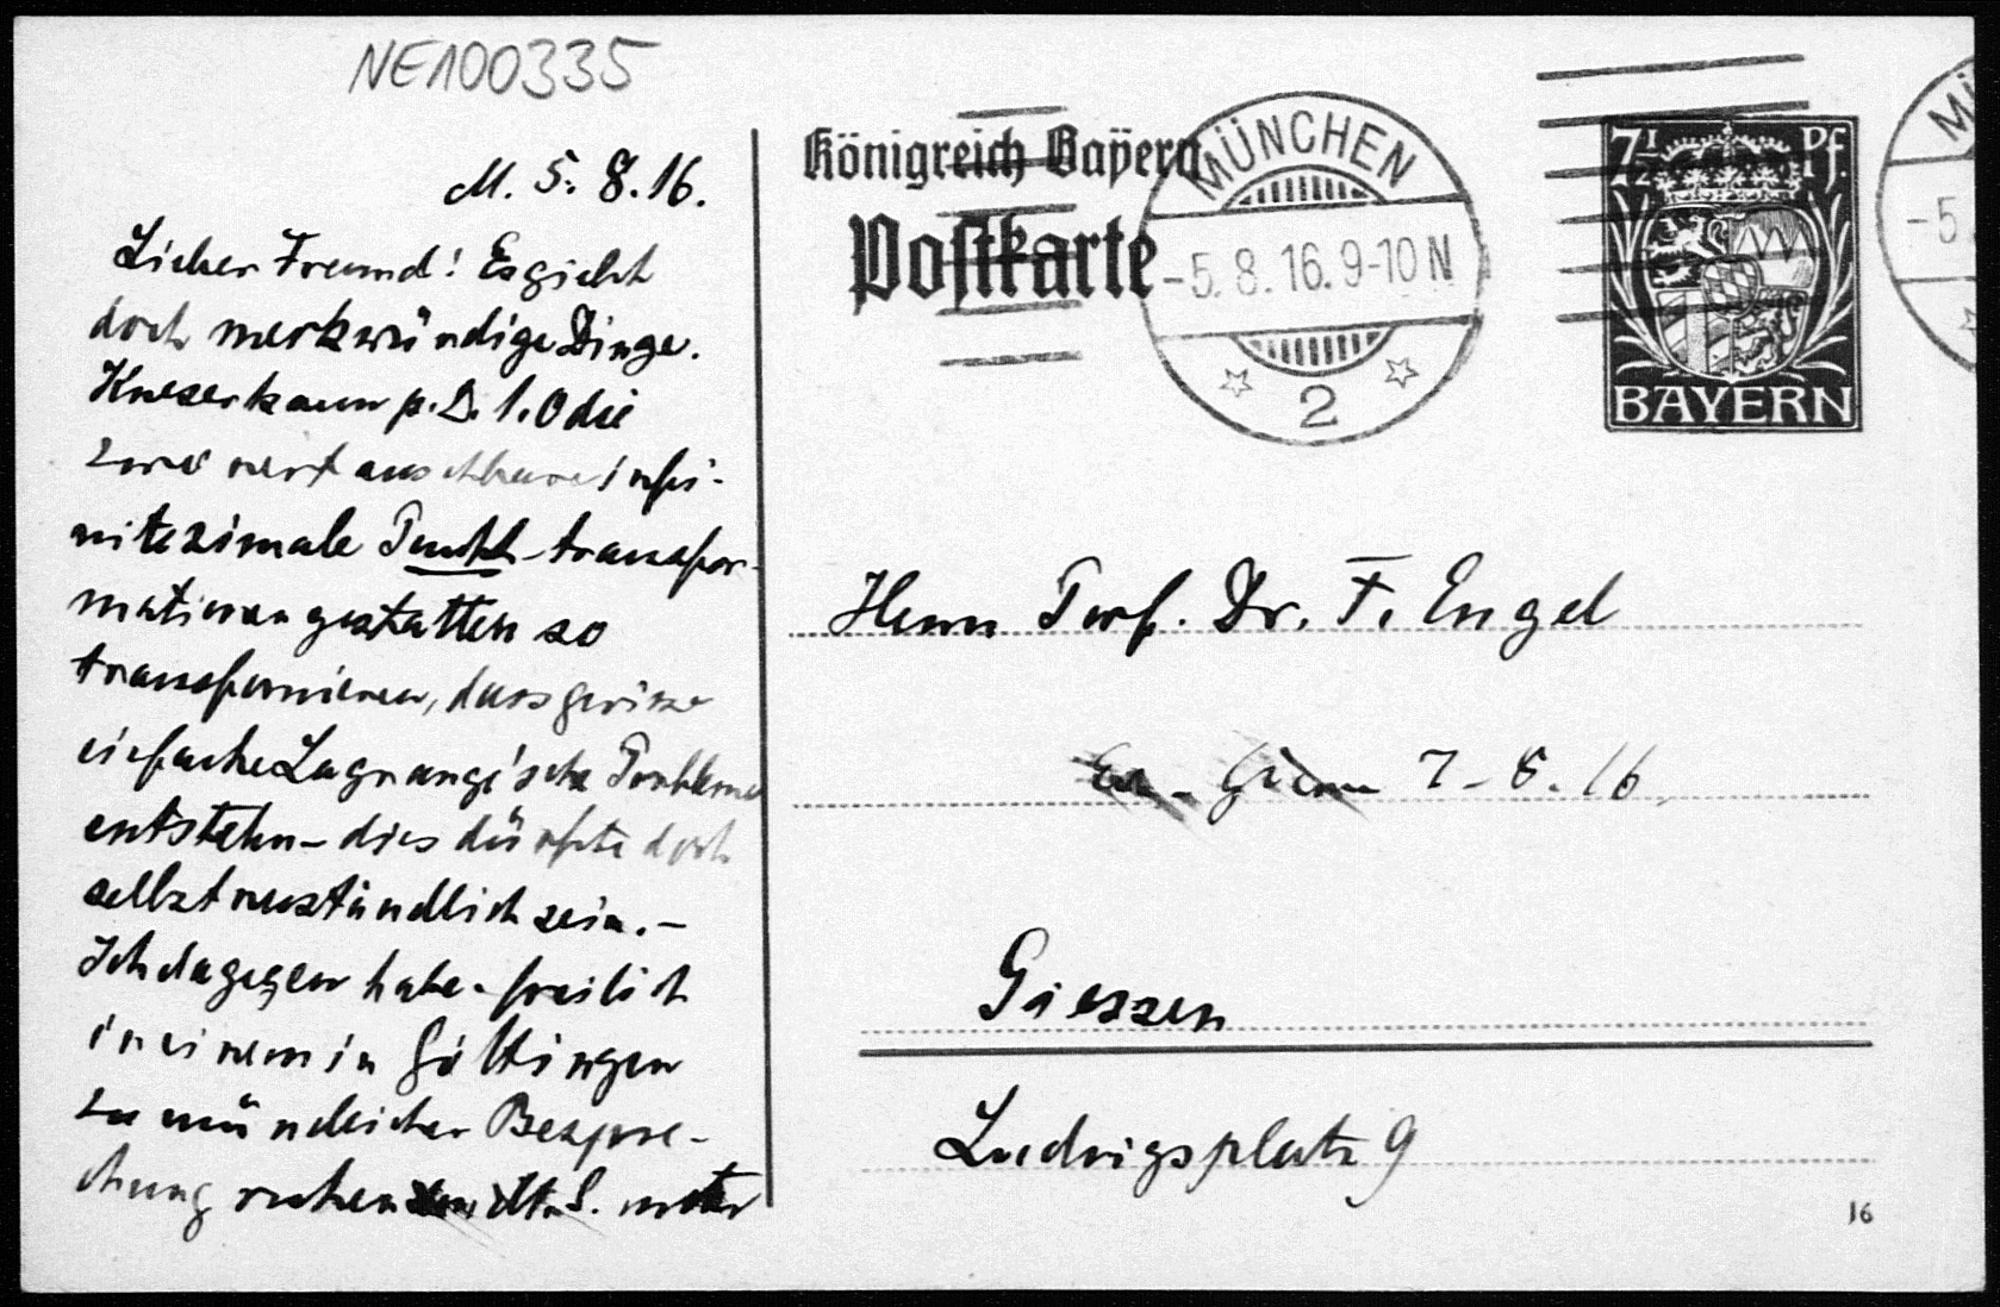 NE100335
M. 5. 8. 16.
Lieber Freund! Es giebt
doch merkwürdige Dinge.
Kneser kann p. D. l. 0 die
zwei vertauschbare infi-
nitezimale Punkt-transfor-
mationen gestatten so
transformieren, dass gewisse
einfache Lagrange'sche Probleme
entstehn – dies dürfte doch
selbstverständlich sein. –
Ich dagegen habe – freilich
in einem in Göttingen
zu mündlicher Bespre-
chung ruhenden M.S. unter
Königreich Bayern
Postkarte
MÜNCHEN
-5. 8. 16. 9-10 N
2
7½ Pf.
BAYERN
MÜ
-5.
Herrn Prof. Dr. F. Engel
7 - 8. 16.
Giessen
Ludwigsplatz 9
16